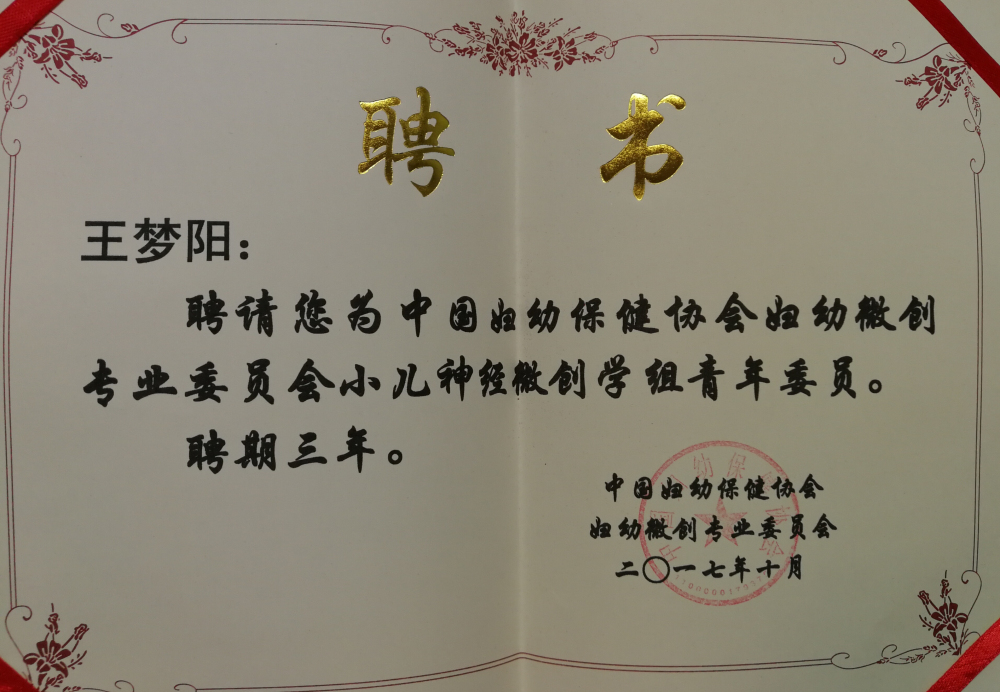 聘书
王梦阳：
聘请您为中国妇幼保健协会妇幼微创
专业委员会小儿神经微创学组青年委员。
聘期三年。
中国妇幼保健协会
妇幼微创专业委员会
二〇一七年十月